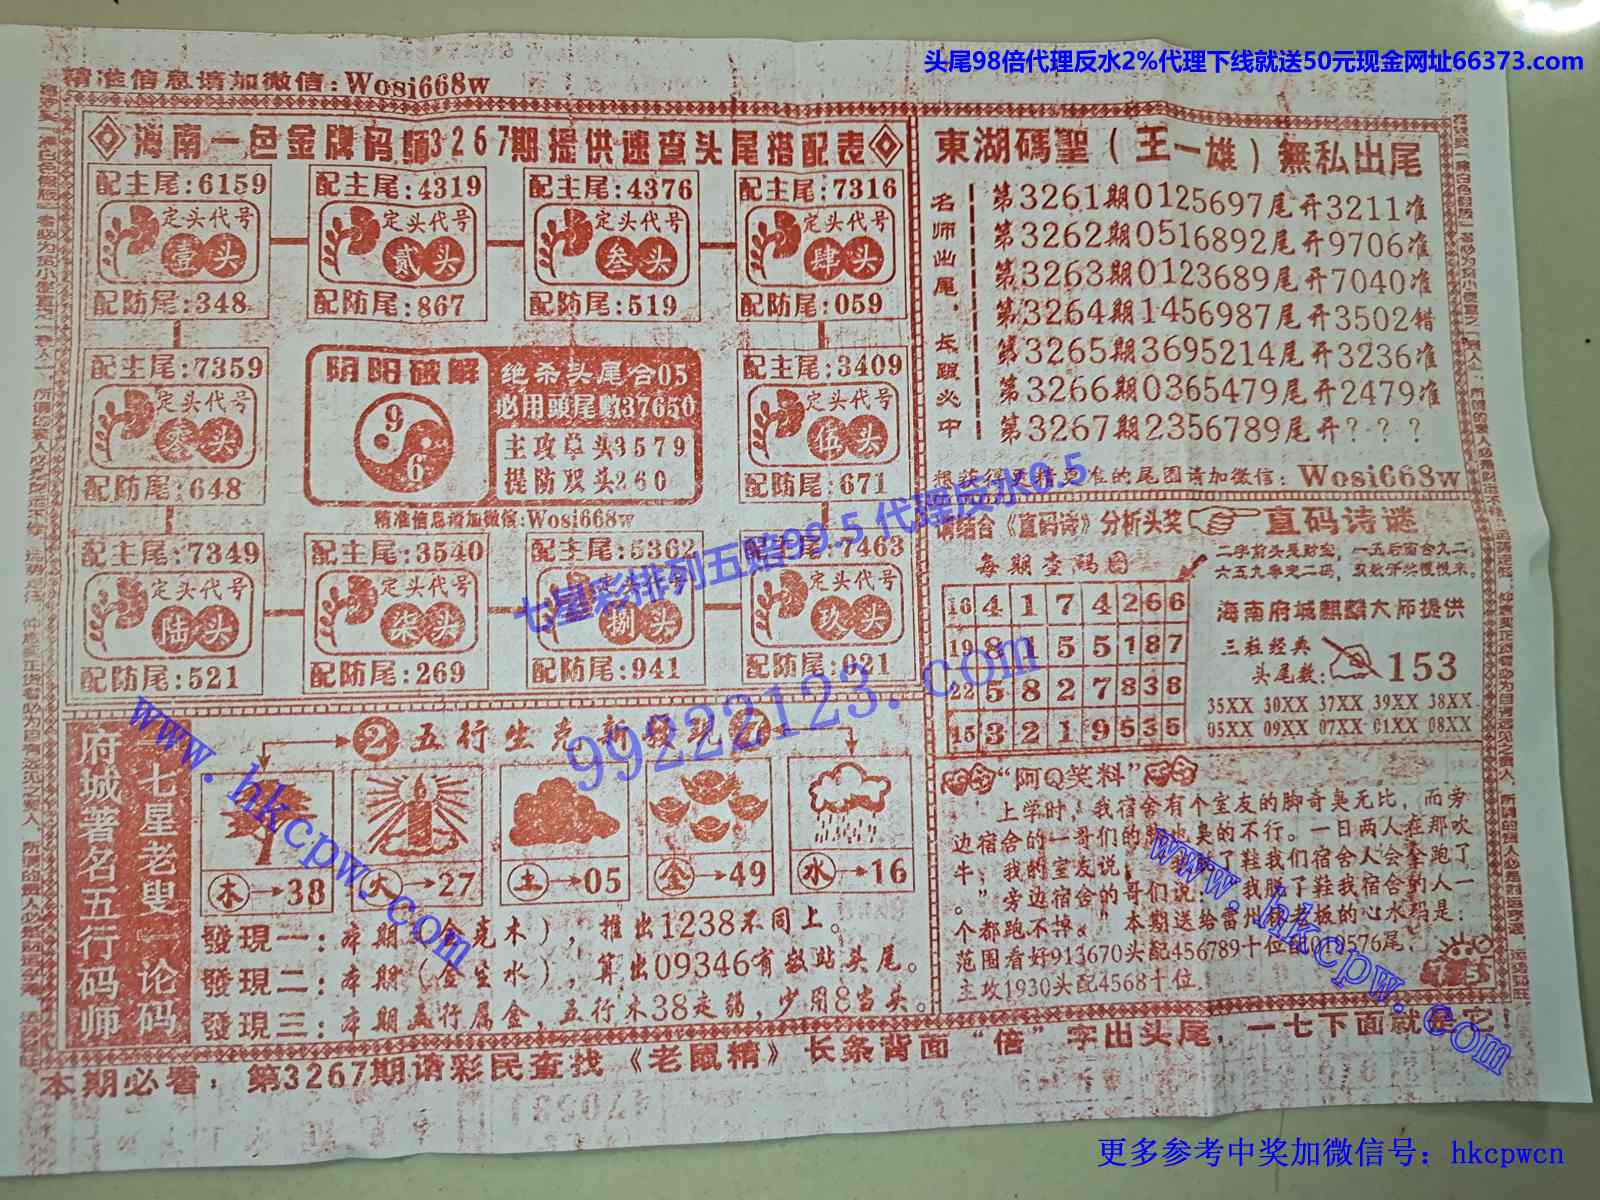 头尾98倍代理反水2%代理下线就送50元现金网址66373.com
精准信息请加微信:Wosi668w
海南一色金牌码师3267期提供速查头尾搭配表
配主尾:6159
定头代号
壹头
配防尾:348
配主尾:4319
定头代号
贰头
配防尾:867
配主尾:4376
定头代号
叁头
配防尾:519
配主尾:7316
定头代号
肆头
配防尾:059
配主尾:7359
定头代号
配防尾:648
阴阳破解
9
6
绝杀头尾合05
必用頭尾數37650
主攻单头3579
提防双头260
精准信息请加微信:Wosi668w
配主尾:3409
定头代号
伍头
配防尾:671
配主尾:7349
定头代号
陆头
配防尾:521
配主尾:3540
定头代号
柒头
配防尾:269
配主尾:5362
定头代号
捌头
配防尾:941
配主尾:7463
定头代号
玖头
配防尾:621
東湖碼聖(王一雄)無私出尾
名师出尾,长跟必中
第3261期0125697尾开3211准
第3262期0516892尾开9706准
第3263期0123689尾开7040准
第3264期1456987尾开3502错
第3265期3695214尾开3236准
第3266期0365479尾开2479准
第3267期2356789尾开???
想获得更精更准的尾图请加微信:Wosi668w
请结合《直码诗》分析头奖
直码诗谜
每期查码图
16 4 1 7 4 2 6 6
19 8 1 5 5 1 8 7
22 5 8 2 7 8 3 8
15 3 2 1 9 5 3 5
二字前头是财宝,一五后面合九二。
六五九零定二码,双数开奖慢慢来。
海南府城麒麟大师提供
三粒经典
头尾数:153
35XX 30XX 37XX 39XX 38XX
05XX 09XX 07XX 01XX 08XX
七星彩排列五赔99.5 代理反水0.5
99222123.com
www.hkcpw.com
www.hkcpw.com
府城著名五行码师
一七星老叟一论码
②五行生克新发现
木→38
火→27
土→05
金→49
水→16
發現一:本期(金克木),推出1238不同上。
發現二:本期(金生水),算出09346有数站头尾。
發現三:本期五行属金,五行木38走弱,少用8当头。
“阿Q笑料”
上学时,我宿舍有个室友的脚奇臭无比,而旁
边宿舍的一哥们的脚也臭的不行。一日两人在那吹
牛,我的室友说:了鞋我们宿舍人会全跑了
。”旁边宿舍的哥们说:我脱了鞋我宿舍的人一
个都跑不掉。”本期送给雷州林老板的心水码是:
范围看好913670头配456789十位配010576尾,
主攻1930头配4568十位.
本期必看:第3267期请彩民查找《老鼠精》长条背面“倍”字出头尾,一七下面就是它!
更多参考中奖加微信号：hkcpwcn